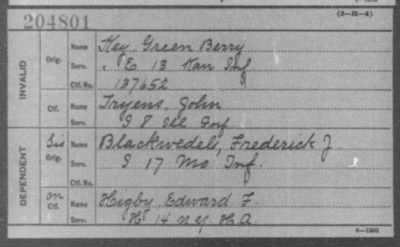 (3-1K-4)
204801
INVALID
Orig.
Name Key, Green Berry
Serv. , E 13 Kan Inf
Ctf. No. 137652
Ctf.
Name Tryens, John
Serv. I 8 Ill Inf
DEPENDENT
Orig.
Name Blackwedel, Frederick J.
Serv. I 17 Mo Inf.
Ctf. No.
On
Ctf.
Name Higby, Edward F.
Serv. H 14 N.Y. H A
6-1306